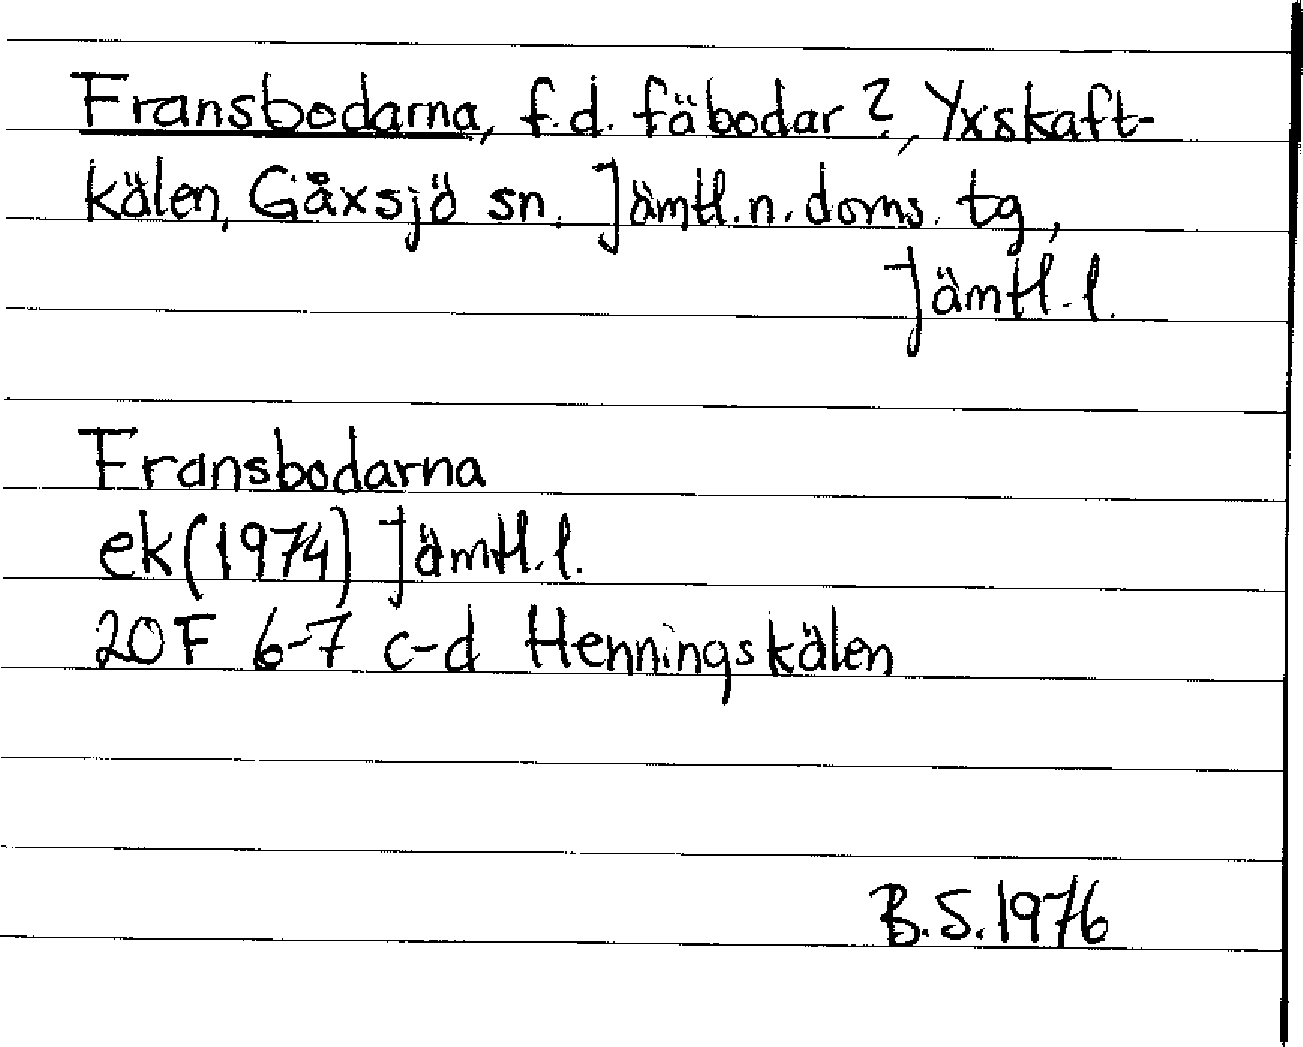 Fransbodarna, f.d. fäbodar?, Yxskaft-
kälen, Gåxsjö sn. Jämtl.n.doms.tg,
Jämtl.l.
Fransbodarna
ek(1974) Jämtl.l.
20F 6-7 c-d Henningskälen
B.S.1976